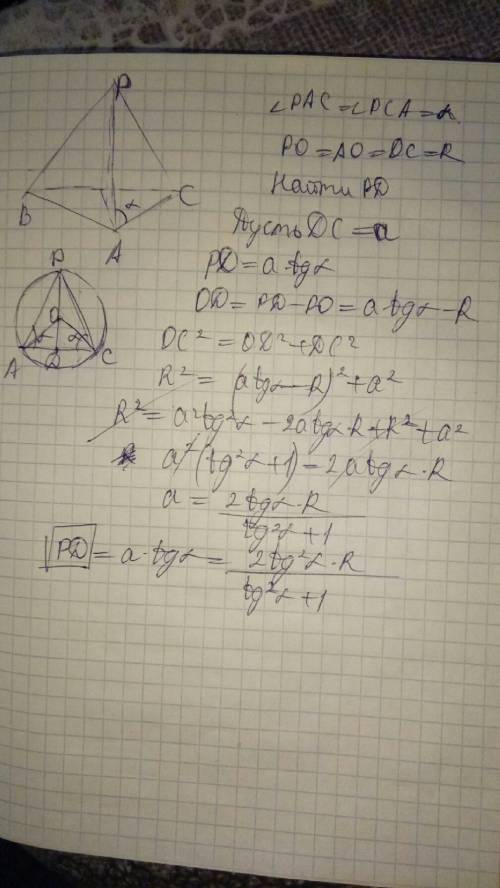 P
B
A
C
α
∠PAC = ∠PCA = α.
PO = AO = DC = R
Найти PD
Пусть DC = a
P
O
α
α
A
D
C
PD = a·tgα
OD = PD - PO = a tgα - R
DC² = OD² + DC²
R² = (a tgα - R)² + a²
R² = a²tg²α - 2a tgα R + R² + a²
a²(tg²α + 1) - 2a tgα·R
a = 2tgα·R / tg²α + 1
PD = a·tgα = 2tg²α·R / tg²α + 1